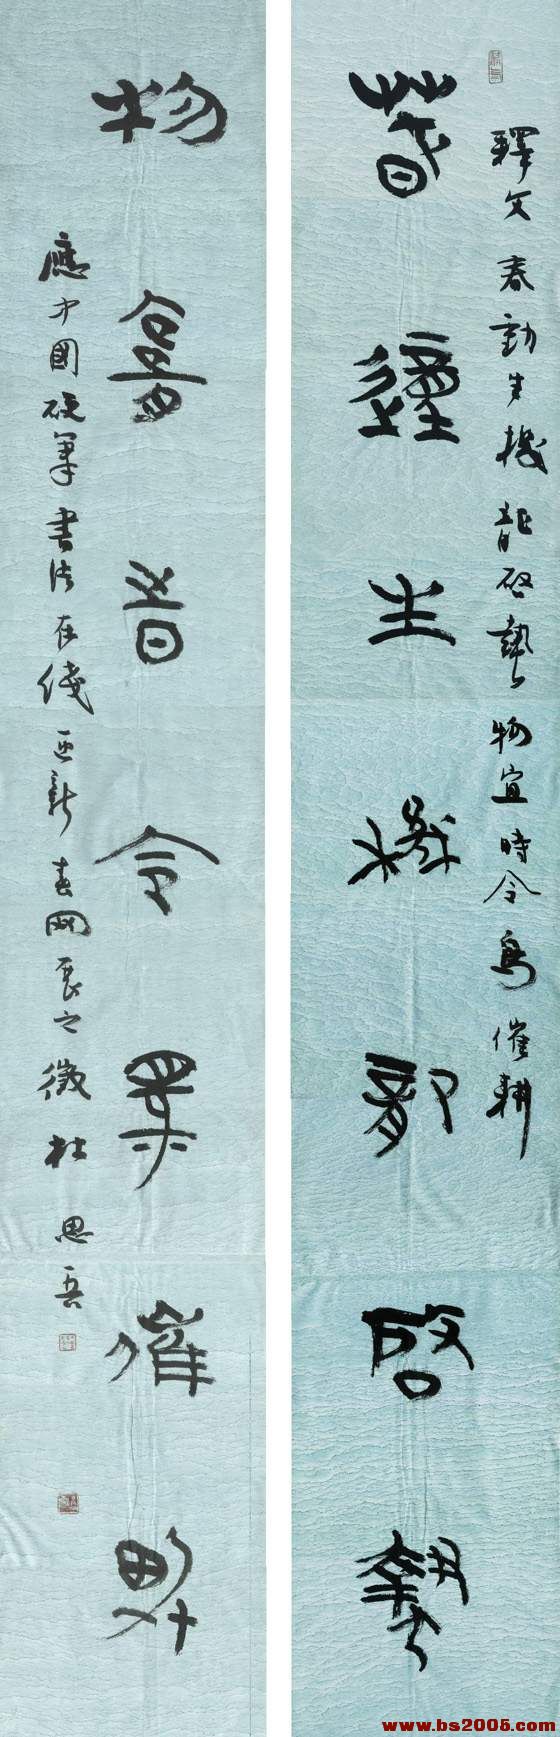 春動生機龍啟勢
釋文春動生機龍啟勢物宜時令鳥催耕
物宜時令鳥催耕
應中國硬筆書法在綫迎新春網展之徵杜思吾
www.bs2005.com